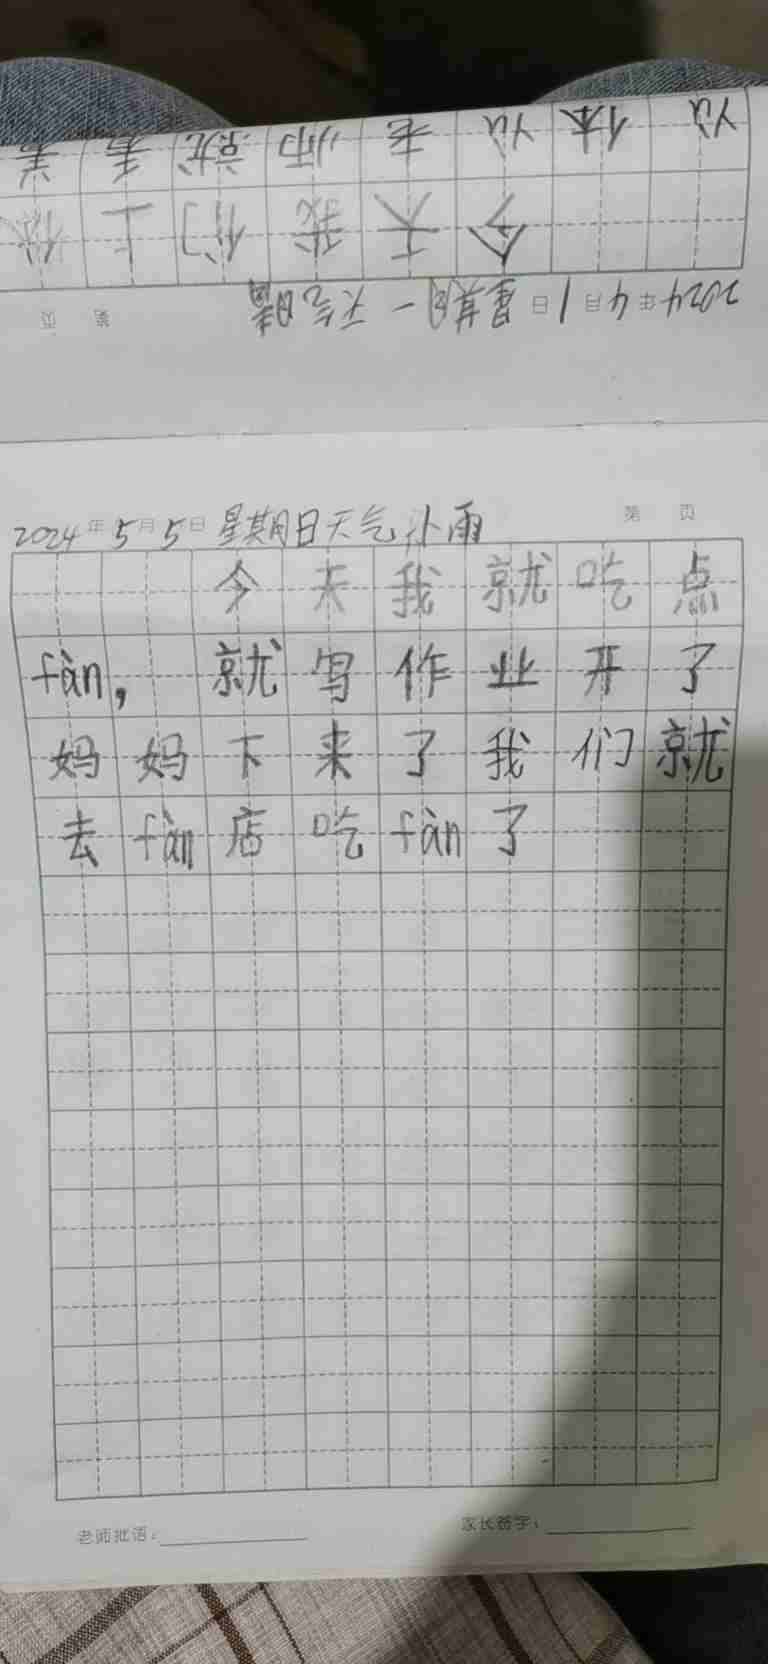 2024年4月1日 星期一 天气晴 第 页
今天我们上
位体位老师就看着
2024年5月5日 星期日天气小雨 第 页
今天我就吃点
fàn，就写作业开了
妈妈下来了我们就
去fàn店吃fàn了
老师批语：
家长签字：